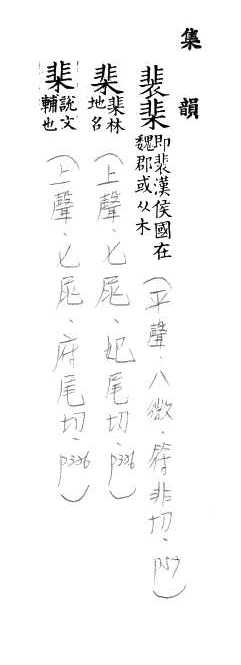 集韻
裴棐即裴漢侯國在
魏郡或从木
(平聲、八微、符非切、p57)
棐棐林
地名
(上聲、七尾、妃尾切、p326)
棐說文
輔也
(上聲、七尾、府尾切、p326)